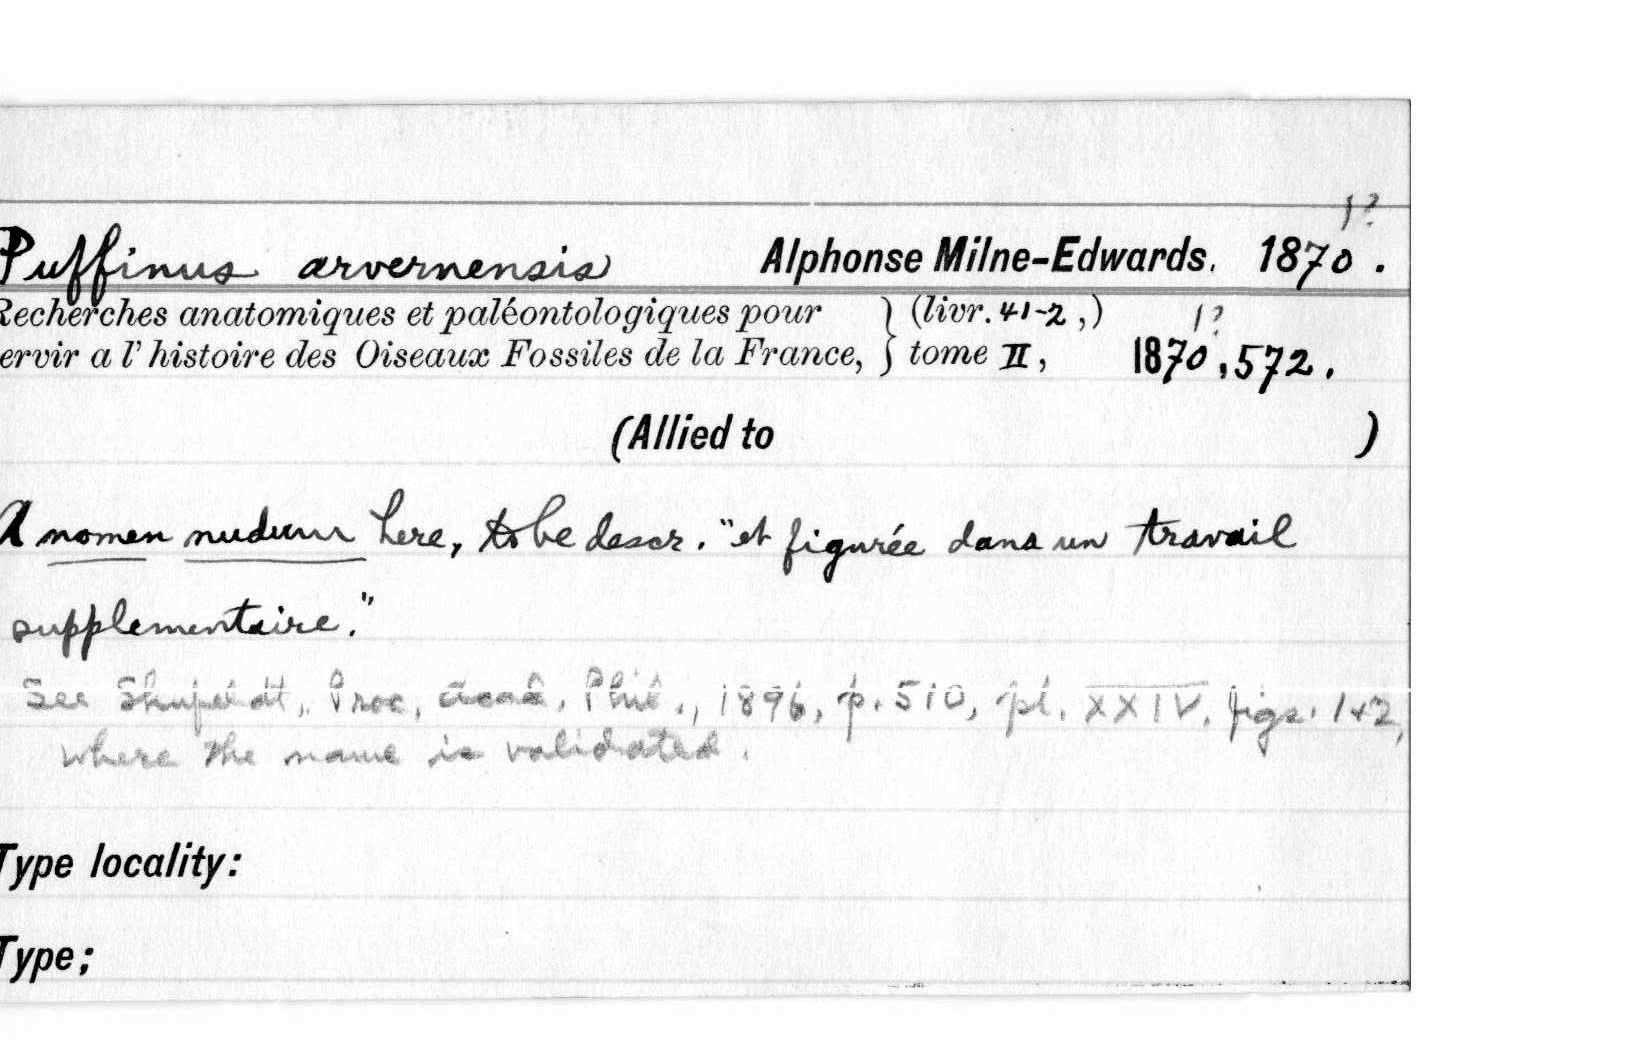 1?
Puffinus arvernensis Alphonse Milne-Edwards. 1870.
Recherches anatomiques et paléontologiques pour } (livr. 41-2,) 1?
ervir a l'histoire des Oiseaux Fossiles de la France, } tome II, 1870, 572.
(Allied to )
A nomen nudum here, to be descr. "et figurée dans un travail
supplementaire."
See Shufeldt, Proc. Acad. Phil., 1896, p. 510, pl. XXIV, figs. 1+2,
where the name is validated.
Type locality:
Type;